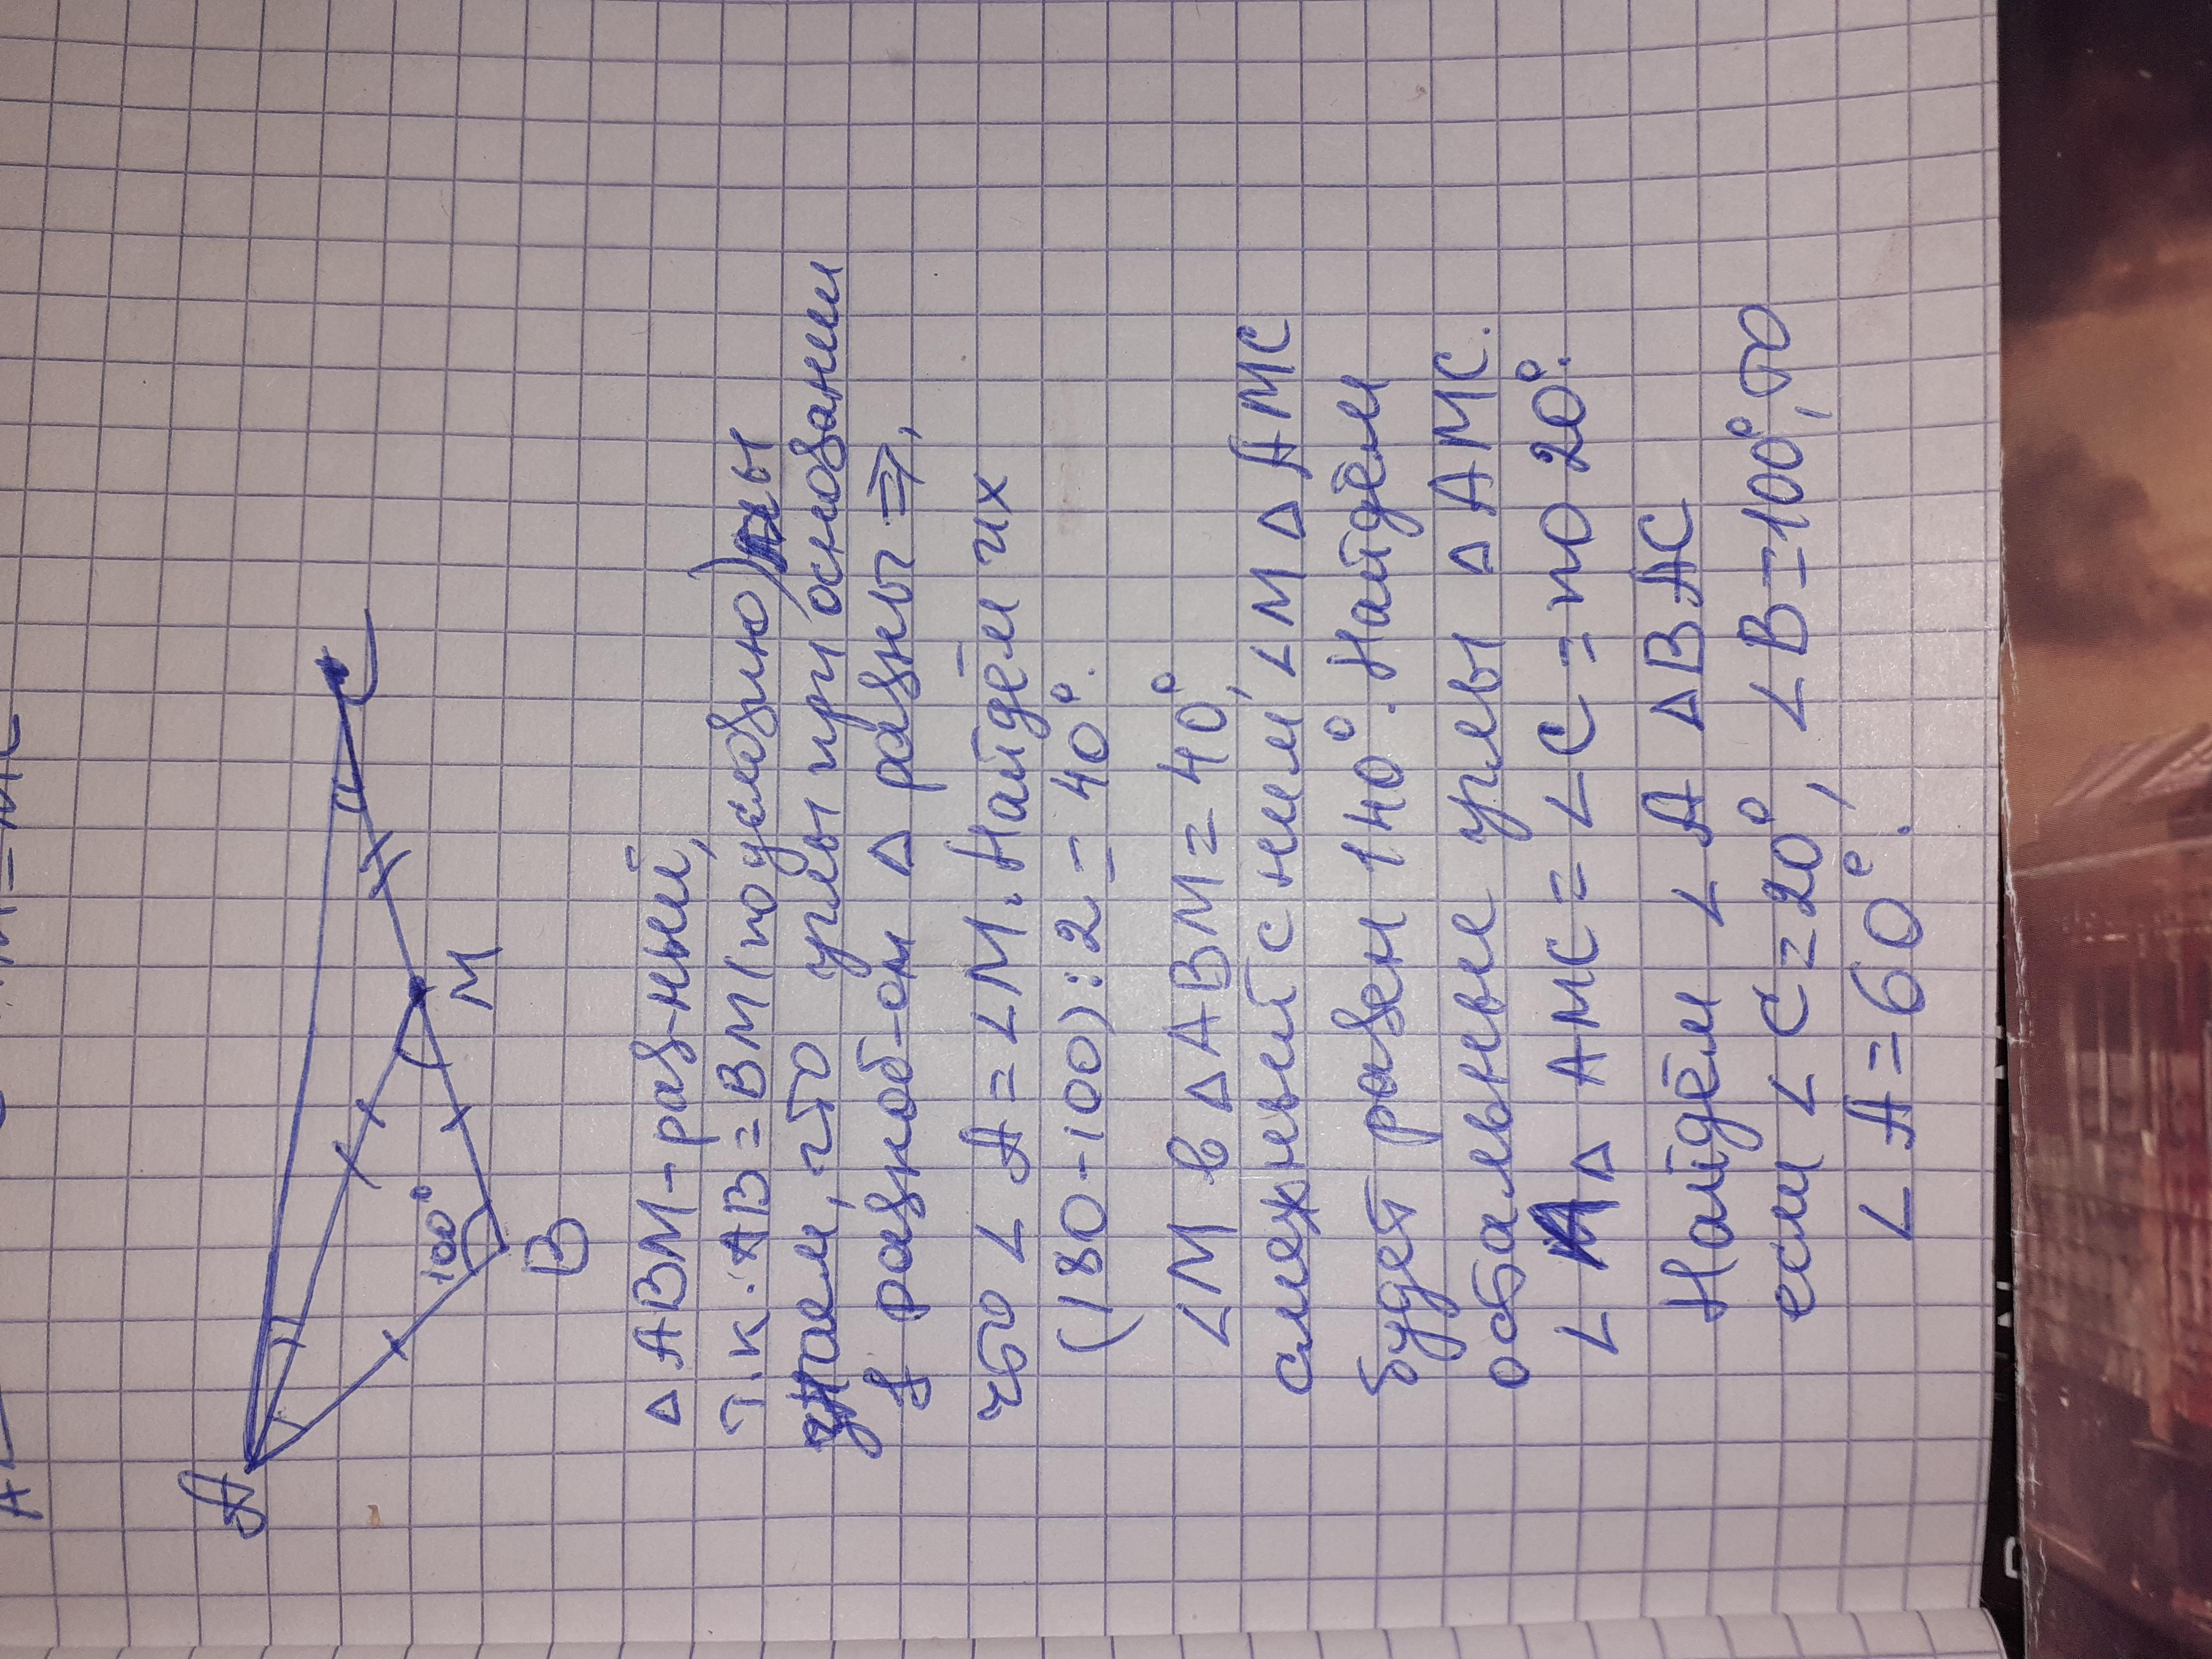 A
100°
B
M
C
△ ABM - рав-ный,
т.к. AB = BM (по условию) мы
знаем, что углы при основании
в равноб-ом △ равны =>,
что ∠ A = ∠M. Найдём их
(180-100):2 = 40°.
∠M в △ABM = 40°,
смежный с ним, ∠M △ AMC
будет равен 140°. Найдём
остальные углы △ AMC.
∠ A △ AMC = ∠C = по 20°.
Найдём ∠ A △ BAC
если ∠ C = 20°, ∠ B = 100°, то
∠ A = 60°.